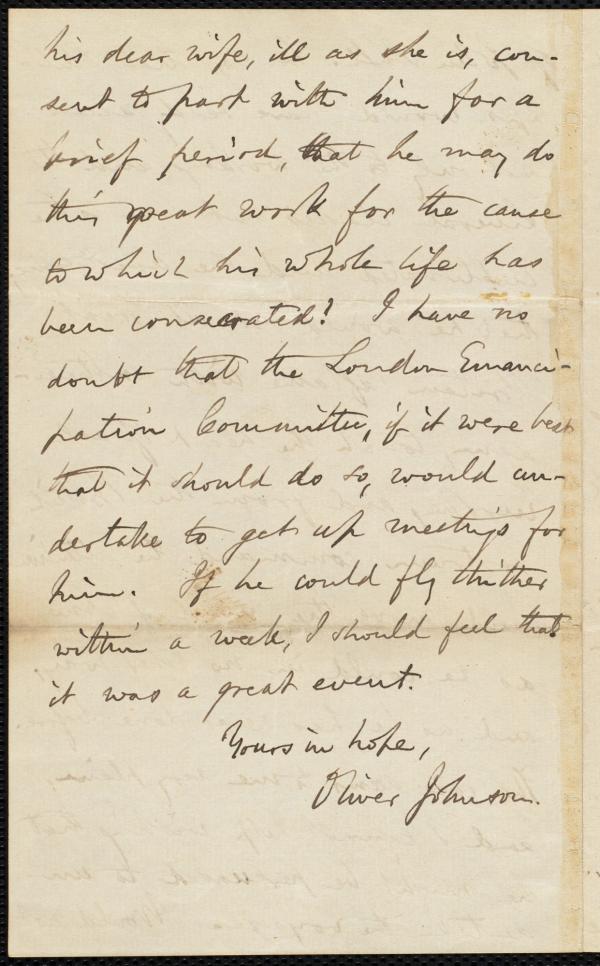 his dear wife, ill as she is, con-
sent to part with him for a
brief period, that he may do
this great work for the cause
to which his whole life has
been consecrated? I have no
doubt that the London Emanci-
pation Committee, if it were best
that it should do so, would un-
dertake to get up meetings for
him. If he could fly thither
within a week, I should feel that
it was a great event.
Yours in hope,
Oliver Johnson.